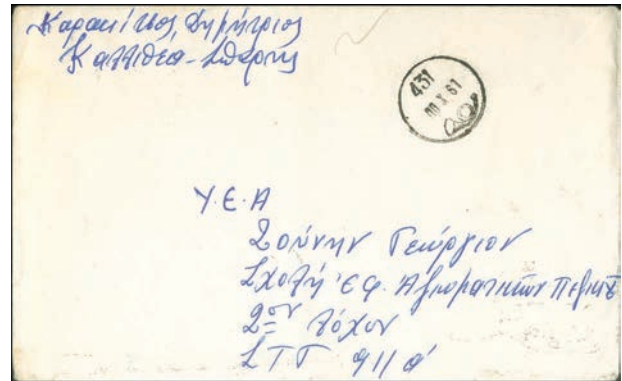 Καρακίτσος Δημήτριος
Καλλιθέα - Σπάρτης
431
X 61
Υ.Ε.Α
Γεώργιον
Σχολή Εφ. Αξιωματικών Πεζικού
2ον λόχον
ΣΤΓ 911 α'